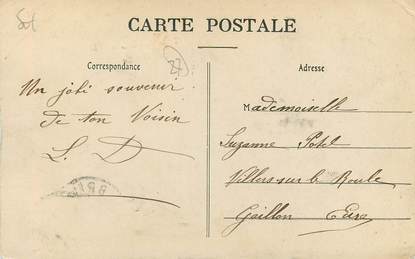 CARTE POSTALE
Correspondance
Adresse
27
Un joli souvenir
de ton Voisin
L. D
Mademoiselle
Suzanne Potel
Villers sur le Roule
Gaillon Eure